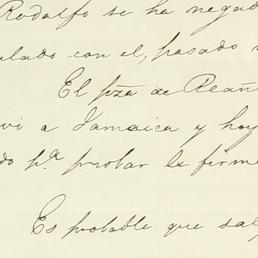 Rodolfo se ha negad
lado con el, pasado
El pza de
vi a Jamaica y hoy
do pª probar la firme
Es probable que sal